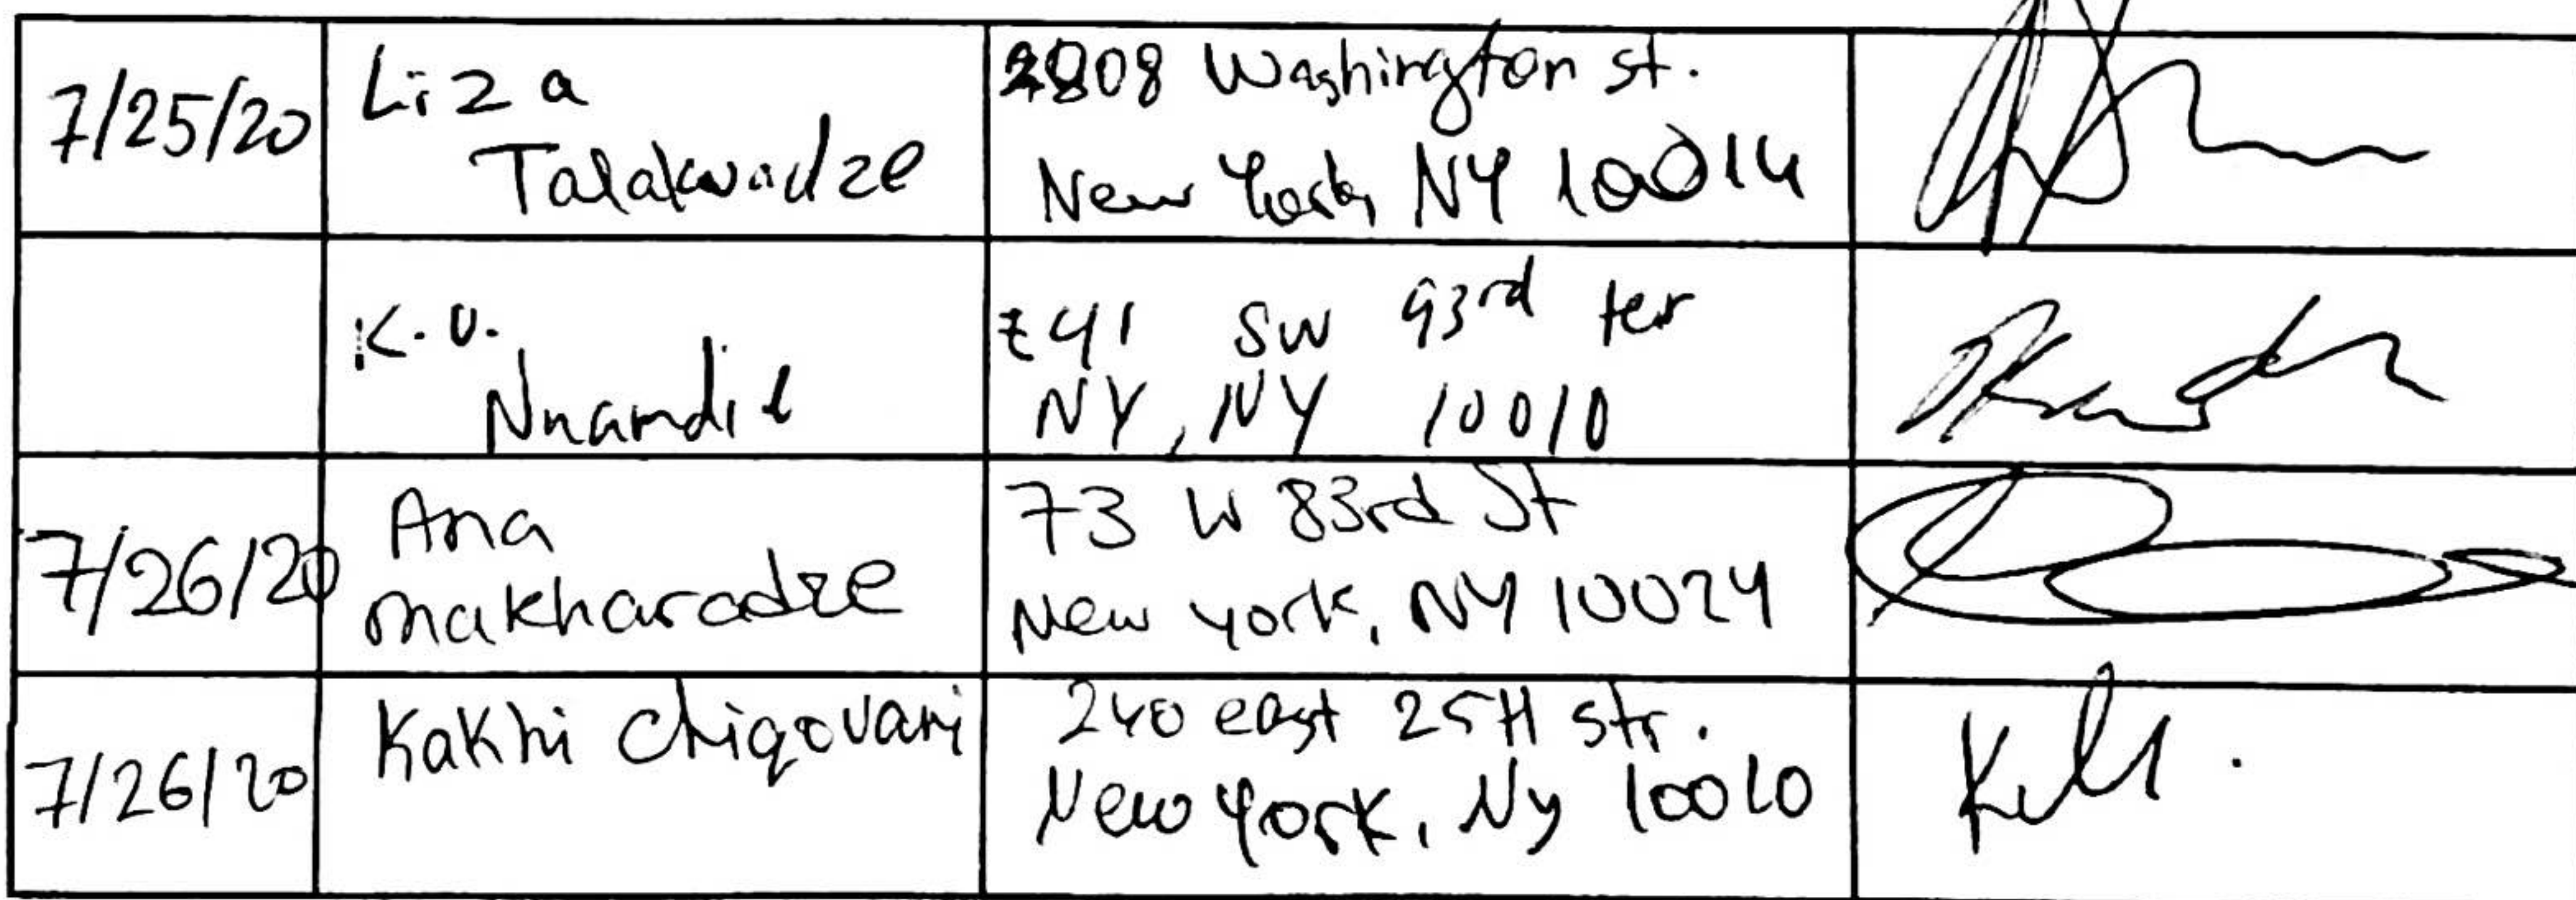 7/25/20
Liza
Talakvadze
808 Washington st.
New York, NY 10014
K. U.
Nnamdi
241 SW 93rd ter
NY, NY 10010
7/26/20
Ana
makharadze
73 W 83rd St
New york, NY 10024
7/26/20
Kakhi Chiqovani
240 east 25H str.
New York, Ny 10010